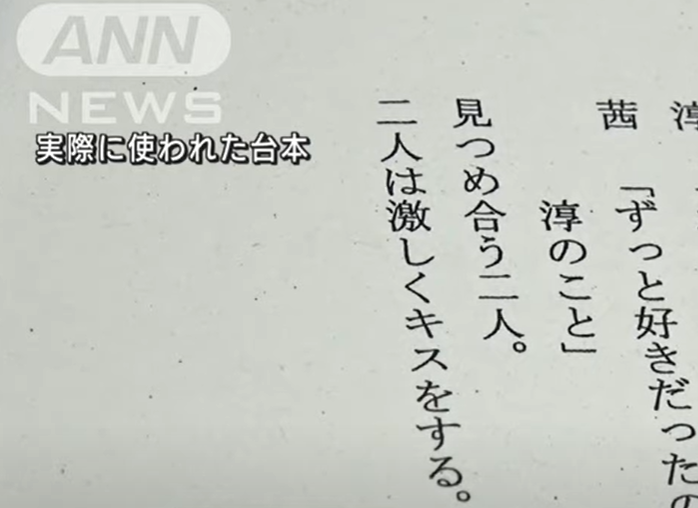 ANN
NEWS
実際に使われた台本
淳
茜　「ずっと好きだったの
淳のこと」
見つめ合う二人。
二人は激しくキスをする。